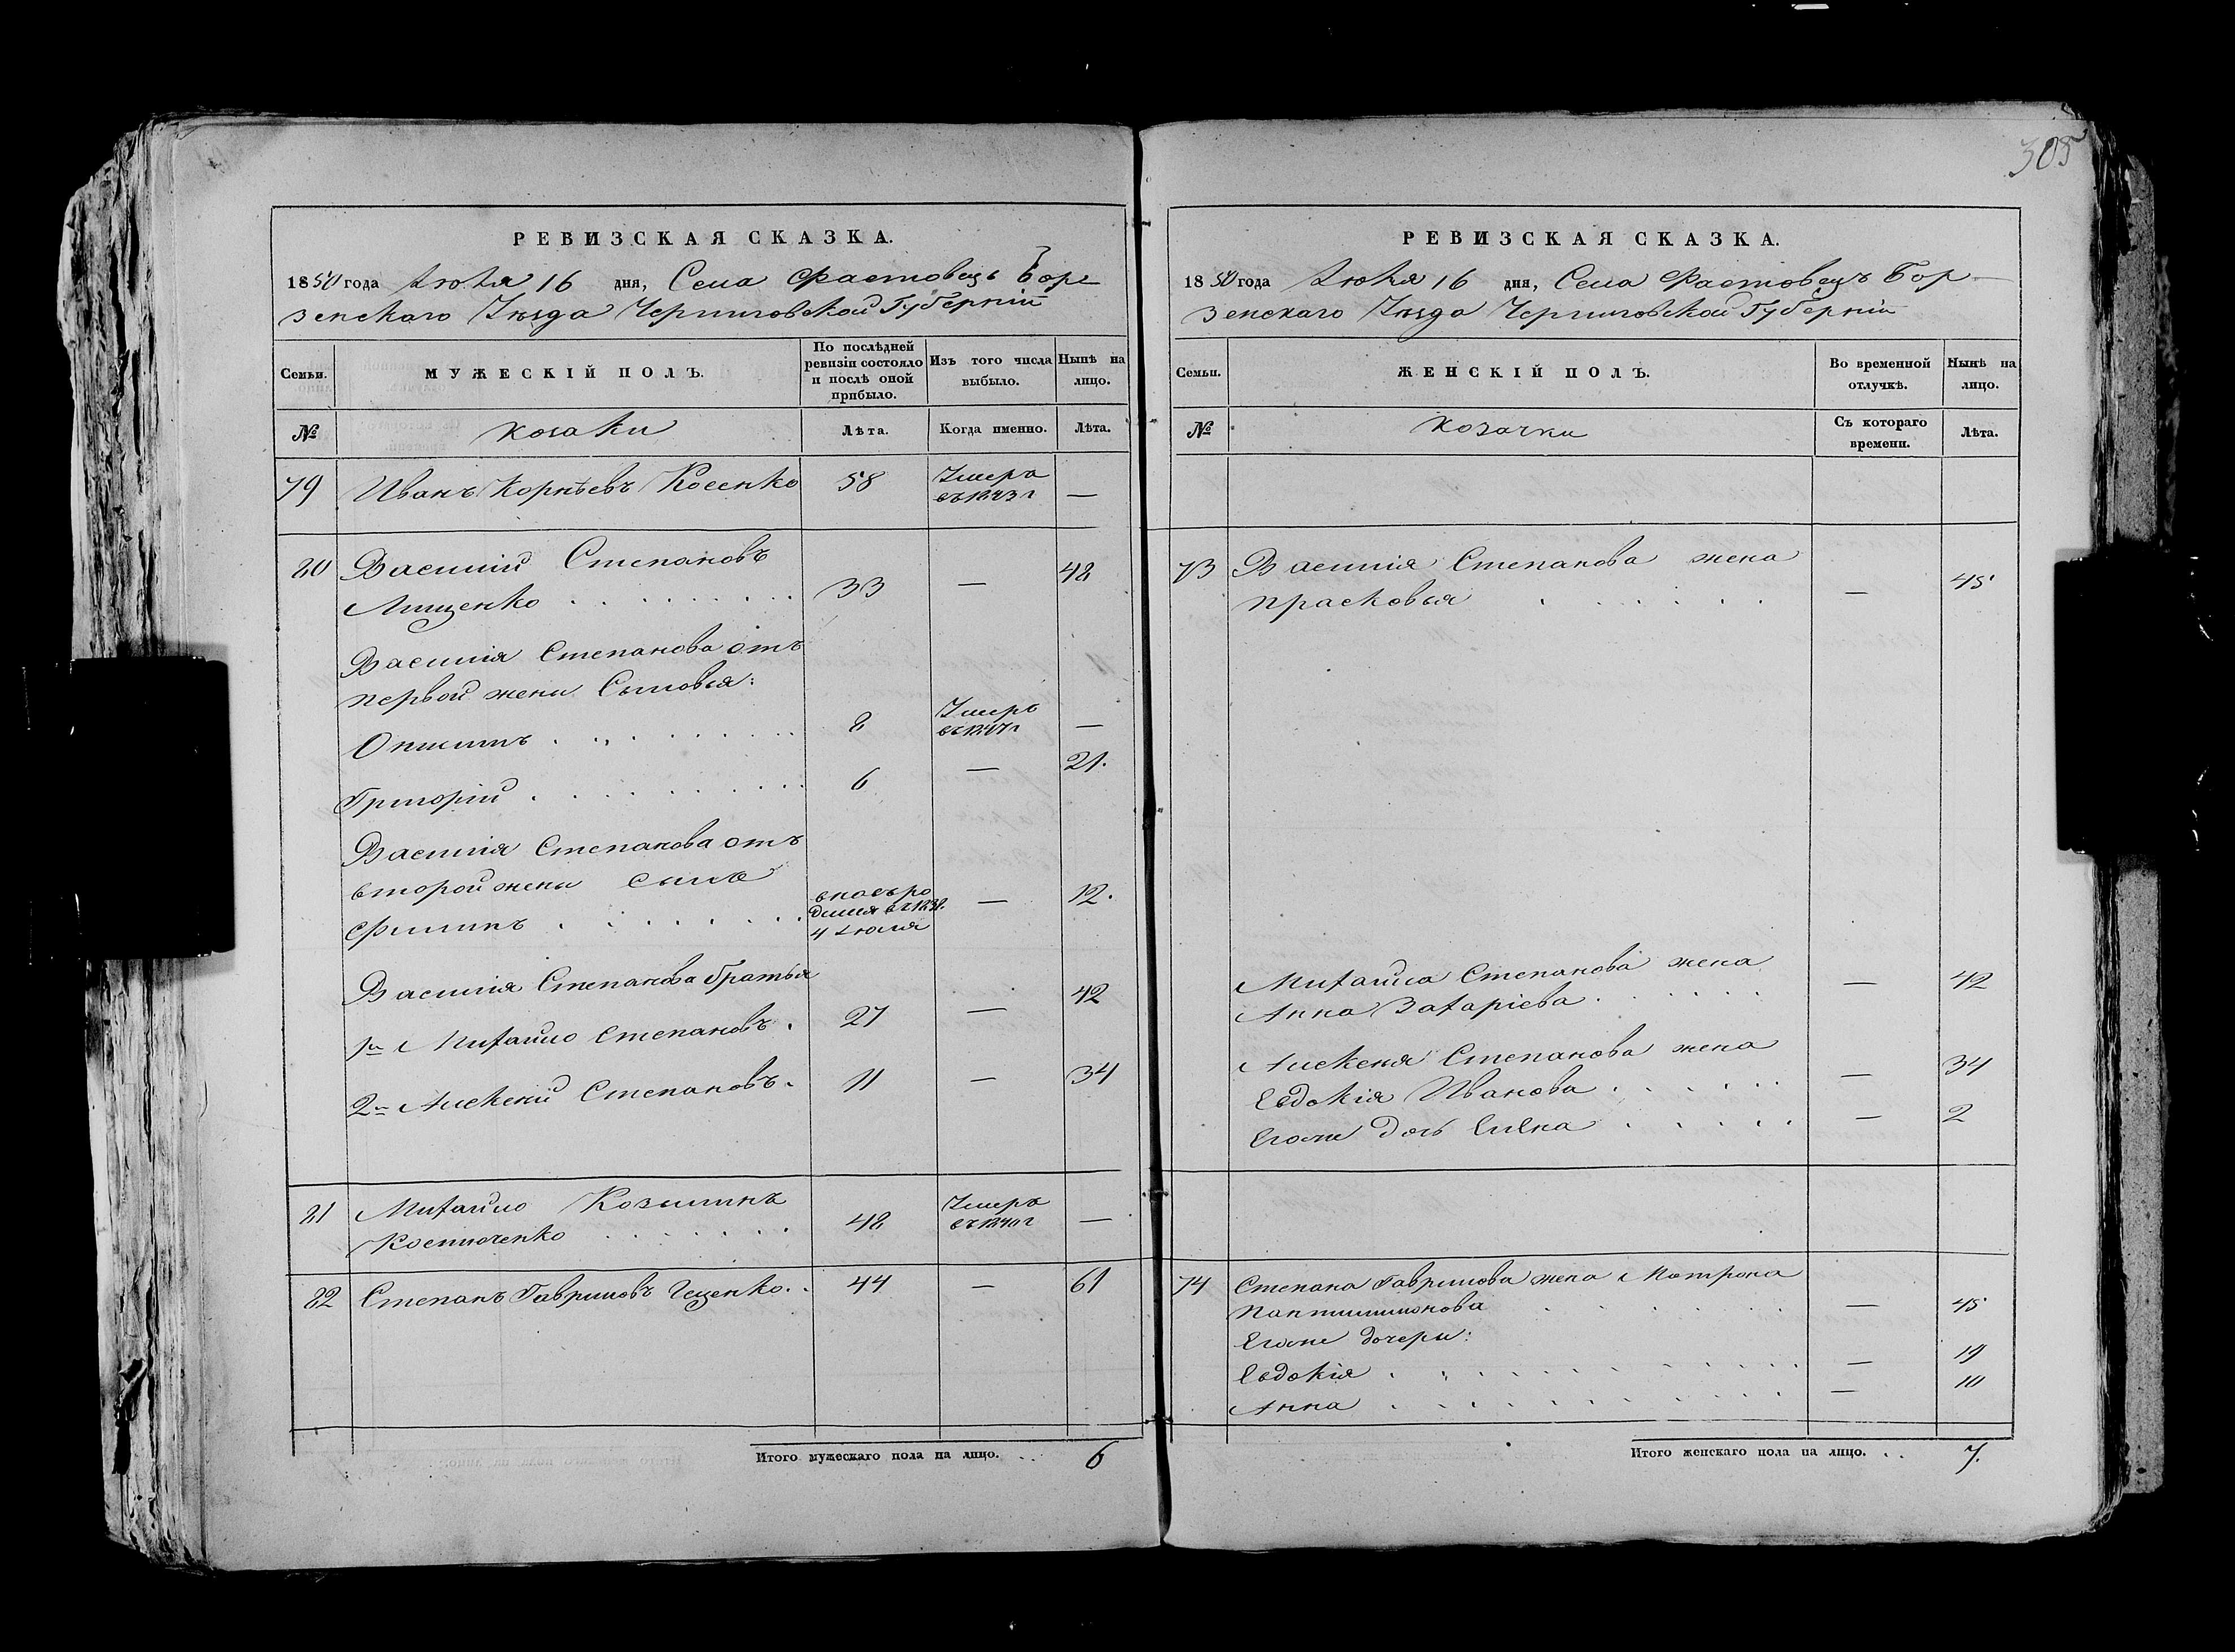 305
РЕВИЗСКАЯ СКАЗКА.
1850 года Іюля 16 дня, Села Фастовець Бор
зенскаго Уѣзда Черниговской Губерніи
Семьи.
МУЖЕСКІЙ ПОЛЪ.
По послѣдней ревизіи состояло и послѣ оной прибыло.
Изъ того числа выбыло.
Нынѣ на лицо.
№
козаки
Лѣта.
Когда именно.
Лѣта.
79 Иванъ Корнѣевъ Косенко 58 Умеръ въ 1843 г —
80 Василій Степановъ
Лищенко 33 — 48
Василія Степанова отъ
первой жены Сыновья:
8 Умеръ въ 1847 г —
Григорій 6 — 21.
Василія Степанова отъ
второй жены сынъ
Филипъ вновь ро дился въ 1838. 4 Іюля — 12.
Василія Степанова братья
1й Михайло Степановъ 27 — 42
2й Алексѣй Степановъ 11 — 34
81 Михайло Козьминъ
Костюченко 48 Умеръ въ 1840 г —
82 Степанъ Гавриловъ 44 — 61
Итого мужескаго пола на лицо. . . 6
РЕВИЗСКАЯ СКАЗКА.
1850 года Іюля 16 дня, Села Фастовецъ Бор
зенскаго Уѣзда Черниговской Губерніи
Семьи.
ЖЕНСКІЙ ПОЛЪ.
Во временной отлучкѣ.
Нынѣ на лицо.
№
козачки
Съ котораго времени.
Лѣта.
73 Василія Степанова жена
Прасковья — 45
Михайла Степанова жена
Анна Захаріева — 42
Алексѣя Степанова жена
Евдокія Иванова — 34
Егоже дочь Елена — 2
74 Степана Гаврилова жена Мотрона
— 45
Егоже дочери:
Евдокія — 19
Анна — 10
Итого женскаго пола на лицо. . . 7.